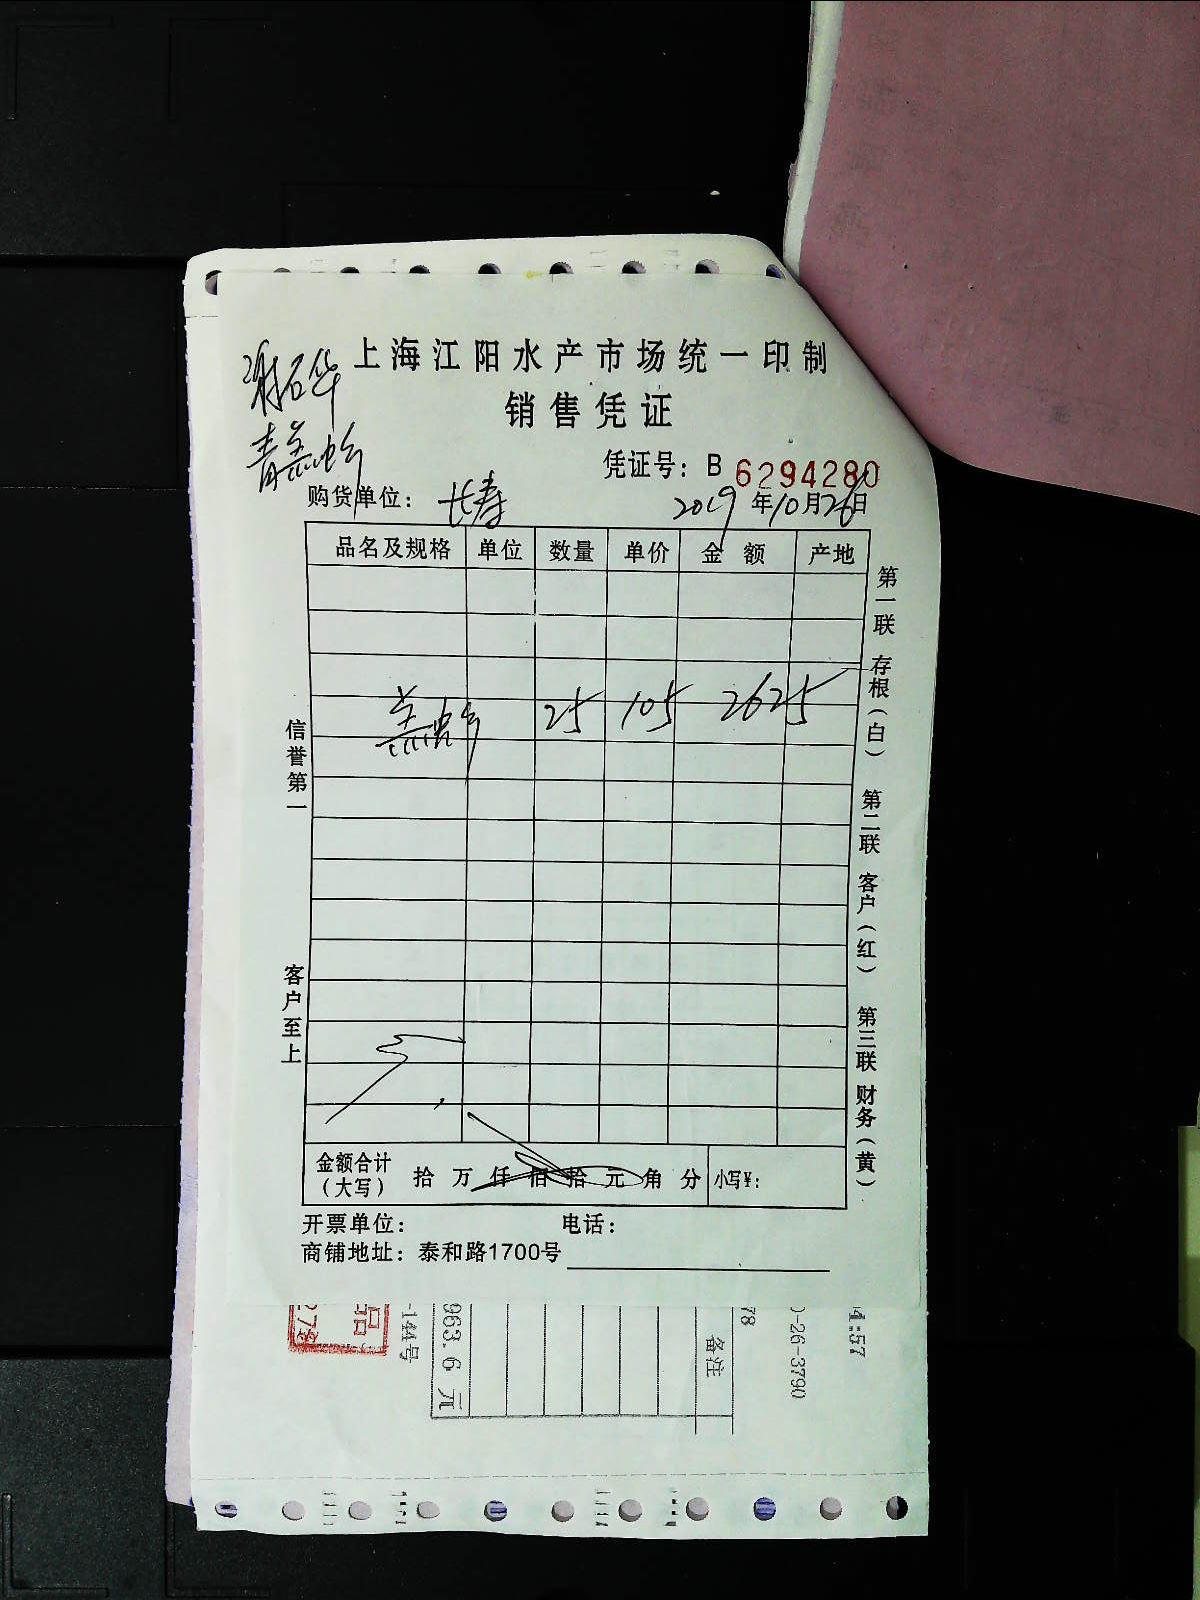 上海江阳水产市场统一印制
谢石华
销售凭证
凭证号：B 6294280
购货单位：长寿 2019年10月26日
品名及规格 单位 数量 单价 金额 产地
25 105 2625
信誉第一
客户至上
第一联 存根（白） 第二联 客户（红） 第三联 财务（黄）
金额合计（大写） 拾 万 仟 佰 拾 元 角 分 小写¥：
开票单位： 电话：
商铺地址：泰和路1700号
-144号
963.6 元
78
备注
)-26-3790
4:57